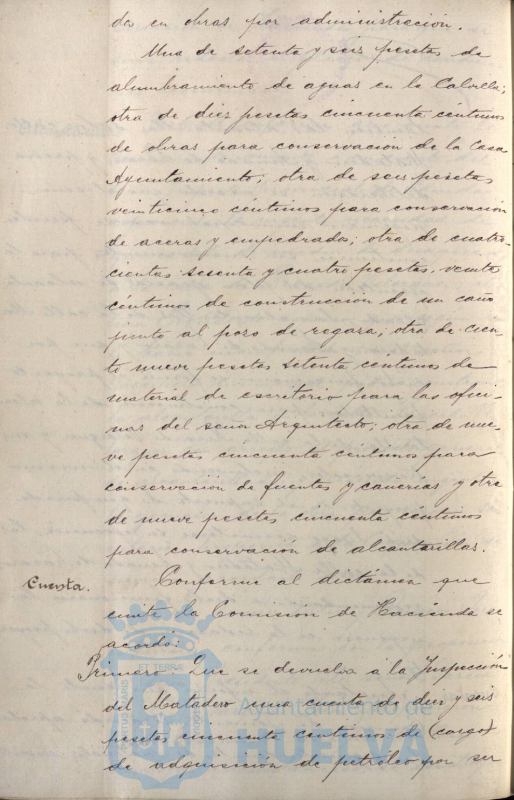 dos en obras por administración.
Una de setenta y seis pesetas de
alumbramiento de aguas en la Calvilla;
otra de diez pesetas cincuenta céntimos
de obras para conservación de la Casa
Ayuntamiento; otra de seis pesetas
veinticinco céntimos para conservación
de aceras y empedrados; otra de cuatro-
cientas sesenta y cuatro pesetas veinte
céntimos de construcción de un caño
junto al pozo de regara; otra de cien-
to nueve pesetas setenta céntimos de
material de escritorio para las ofici-
nas del señor Arquitecto; otra de nue-
ve pesetas cincuenta céntimos para
conservación de fuentes y cañerías y otra
de nueve pesetas cincuenta céntimos
para conservación de alcantarillas.
Cuenta. Conforme al dictámen que
emite la Comisión de Hacienda se
acordó:
Primero. Que se devuelva á la Inspección
del Matadero una cuenta de diez y seis
pesetas cincuenta céntimos de (cargo)
de adquisición de petróleo por ser
ET TERRAE
Ayuntamiento de
HUELVA